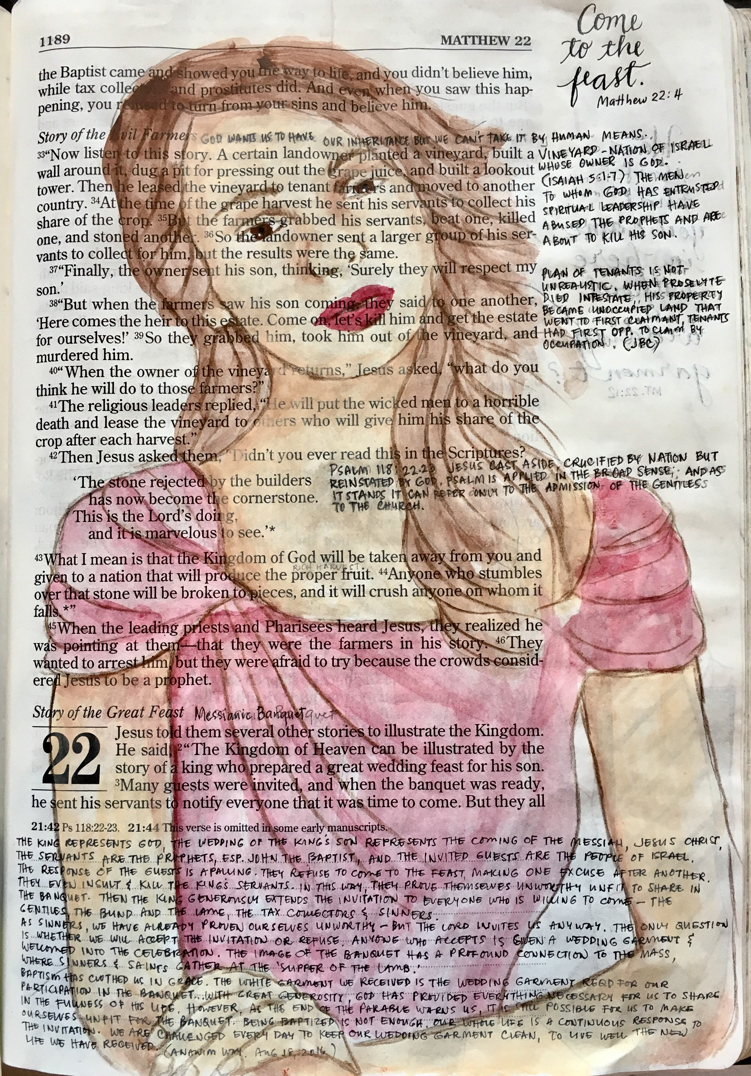 1189
MATTHEW 22
Come
to the
feast.
Matthew 22:4
the Baptist came and showed you the way to life, and you didn't believe him,
while tax collectors and prostitutes did. And even when you saw this hap-
pening, you refused to turn from your sins and believe him.
Story of the Evil Farmers GOD WANTS US TO HAVE OUR INHERITANCE BUT WE CAN'T TAKE IT BY HUMAN MEANS.
33"Now listen to this story. A certain landowner planted a vineyard, built a
wall around it, dug a pit for pressing out the grape juice, and built a lookout
tower. Then he leased the vineyard to tenant farmers and moved to another
country. 34At the time of the grape harvest he sent his servants to collect his
share of the crop. 35But the farmers grabbed his servants, beat one, killed
one, and stoned another. 36So the landowner sent a larger group of his ser-
vants to collect for him, but the results were the same.
37"Finally, the owner sent his son, thinking, 'Surely they will respect my
son.'
38"But when the farmers saw his son coming, they said to one another,
'Here comes the heir to this estate. Come on, let's kill him and get the estate
for ourselves!' 39So they grabbed him, took him out of the vineyard, and
murdered him.
40"When the owner of the vineyard returns," Jesus asked, "what do you
think he will do to those farmers?"
41The religious leaders replied, "He will put the wicked men to a horrible
death and lease the vineyard to others who will give him his share of the
crop after each harvest."
42Then Jesus asked them, "Didn't you ever read this in the Scriptures?
'The stone rejected by the builders
has now become the cornerstone.
This is the Lord's doing,
and it is marvelous to see.'*
VINEYARD - NATION OF ISRAEL
WHOSE OWNER IS GOD.
(ISAIAH 5:1-7) THE MEN
TO WHOM GOD HAS ENTRUSTED
SPIRITUAL LEADERSHIP HAVE
ABUSED THE PROPHETS AND ARE
ABOUT TO KILL HIS SON.
PLAN OF TENANTS IS NOT
UNREALISTIC. WHEN PROSELYTE
DIED INTESTATE, HIS PROPERTY
BECAME UNOCCUPIED LAND THAT
WENT TO FIRST CLAIMANT, TENANTS
HAD FIRST OPP. TO CLAIM BY
OCCUPATION. (JBC)
PSALM 118:22-23 JESUS CAST ASIDE, CRUCIFIED BY NATION BUT
REINSTATED BY GOD. PSALM IS APPLIED IN THE BROAD SENSE, AND AS
IT STANDS IT CAN REFER ONLY TO THE ADMISSION OF THE GENTILES
TO THE CHURCH.
43What I mean is that the Kingdom of God will be taken away from you and
given to a nation that will produce the proper fruit. 44Anyone who stumbles
over that stone will be broken to pieces, and it will crush anyone on whom it
falls.*"
45When the leading priests and Pharisees heard Jesus, they realized he
was pointing at them—that they were the farmers in his story. 46They
wanted to arrest him, but they were afraid to try because the crowds consid-
ered Jesus to be a prophet.
Story of the Great Feast Messianic Banquet
22 Jesus told them several other stories to illustrate the Kingdom.
He said, 2"The Kingdom of Heaven can be illustrated by the
story of a king who prepared a great wedding feast for his son.
3Many guests were invited, and when the banquet was ready,
he sent his servants to notify everyone that it was time to come. But they all
21:42 Ps 118:22-23. 21:44 This verse is omitted in some early manuscripts.
THE KING REPRESENTS GOD, THE WEDDING OF THE KING'S SON REPRESENTS THE COMING OF THE MESSIAH, JESUS CHRIST,
THE SERVANTS ARE THE PROPHETS, ESP. JOHN THE BAPTIST, AND THE INVITED GUESTS ARE THE PEOPLE OF ISRAEL.
THE RESPONSE OF THE GUESTS IS APALLING. THEY REFUSE TO COME TO THE FEAST, MAKING ONE EXCUSE AFTER ANOTHER.
THEY EVEN INSULT & KILL THE KING'S SERVANTS. IN THIS WAY, THEY PROVE THEMSELVES UNWORTHY UNFIT TO SHARE IN
THE BANQUET. THEN THE KING GENEROUSLY EXTENDS THE INVITATION TO EVERYONE WHO IS WILLING TO COME — THE
GENTILES, THE BLIND AND THE LAME, THE TAX COLLECTORS & SINNERS.
AS SINNERS, WE HAVE ALREADY PROVEN OURSELVES UNWORTHY — BUT THE LORD INVITES US ANYWAY. THE ONLY QUESTION
IS WHETHER WE WILL ACCEPT THE INVITATION OR REFUSE. ANYONE WHO ACCEPTS IS GIVEN A WEDDING GARMENT &
WELCOMED INTO THE CELEBRATION. THE IMAGE OF THE BANQUET HAS A PROFOUND CONNECTION TO THE MASS,
WHERE SINNERS & SAINTS GATHER AT THE 'SUPPER OF THE LAMB.'
BAPTISM HAS CLOTHED US IN GRACE. THE WHITE GARMENT WE RECEIVED IS THE WEDDING GARMENT REQD FOR OUR
PARTICIPATION IN THE BANQUET...WITH GREAT GENEROSITY, GOD HAS PROVIDED EVERYTHING NECESSARY FOR US TO SHARE
IN THE FULLNESS OF HIS LIFE. HOWEVER, AS THE END OF THE PARABLE WARNS US, IT IS STILL POSSIBLE FOR US TO MAKE
OURSELVES UNFIT FOR THE BANQUET. BEING BAPTIZED IS NOT ENOUGH. OUR WHOLE LIFE IS A CONTINUOUS RESPONSE TO
THE INVITATION. WE ARE CHALLENGED EVERY DAY TO KEEP OUR WEDDING GARMENT CLEAN, TO LIVE WELL THE NEW
LIFE WE HAVE RECEIVED. (ANAWIM WAY, AUG 18, 2016)